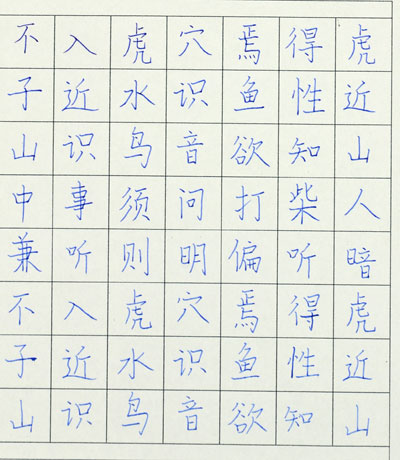 不入虎穴焉得虎
子近水识鱼性近
山识鸟音欲知山
中事须问打柴人
兼听则明偏听暗
不入虎穴焉得虎
子近水识鱼性近
山识鸟音欲知山